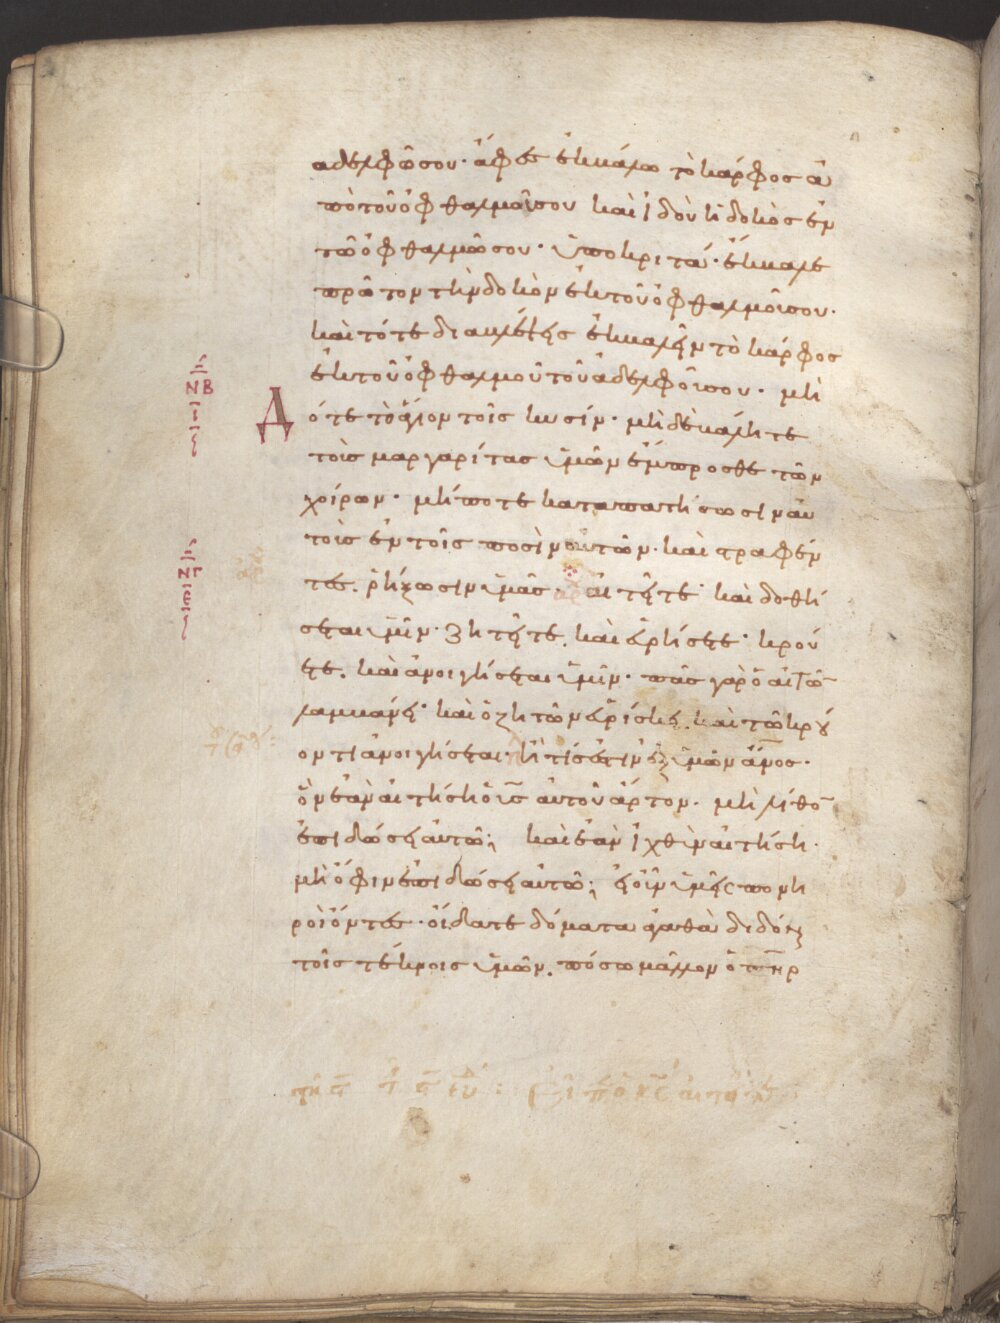 ἀδελφῶ σου· ἄφες ἐκβάλω τὸ κάρφος ἀ
πὸ τοῦ ὀφθαλμοῦ σου καὶ ἰδοὺ ἡ δοκὸς ἐν
τῶ ὀφθαλμῶ σου· ὑποκριτά· ἔκβαλε
πρῶτον τὴν δοκὸν ἐκ τοῦ ὀφθαλμοῦ σου·
καὶ τότε διαβλέψεις ἐκβαλεῖν τὸ κάρφος
ἐκ τοῦ ὀφθαλμοῦ τοῦ ἀδελφοῦ σου· μὴ
Δ ότε τὸ ἅγιον τοῖς κυσίν· μὴ δὲ βάλητε
τοὺς μαργαρίτας ὑμῶν ἔμπροσθε τῶν
χοίρων· μήποτε καταπατήσωσιν αὐ
τοὺς ἐν τοῖς ποσὶν αὐτῶν· καὶ τραφέν
τες. ῥήξωσιν ὑμᾶς· αἰτεῖτε· καὶ δοθή
σεται ὑμῖν· ζητεῖτε. καὶ εὑρήσετε· κρού
ετε. καὶ ἀνοιγήσεται ὑμῖν· πᾶς γὰρ ὁ αἰτῶ
λαμβάνει· καὶ ὁ ζητῶν εὑρίσκει. καὶ τῶ κρού
οντι ἀνοιγήσεται· ἢ τίς ἐστιν ἐξ ὑμῶν ἄνος·
ὃν ἐὰν αἰτήση ὁ υς αὐτοῦ ἄρτον· μὴ λίθο
ἐπιδώσει αὐτῶ; καὶ ἐὰν ἰχθὺν αἰτήση·
μὴ ὄφιν ἐπιδώσει αὐτῶ; εἰ οὖν ὑμεῖς πονη
ροὶ ὄντες· οἴδατε δόματα ἀγαθὰ διδόναι
τοῖς τέκνοις ὑμῶν. πόσω μᾶλλον ὁ πηρ
ΝΒ
Ι
ς
ΝΓ
Ε